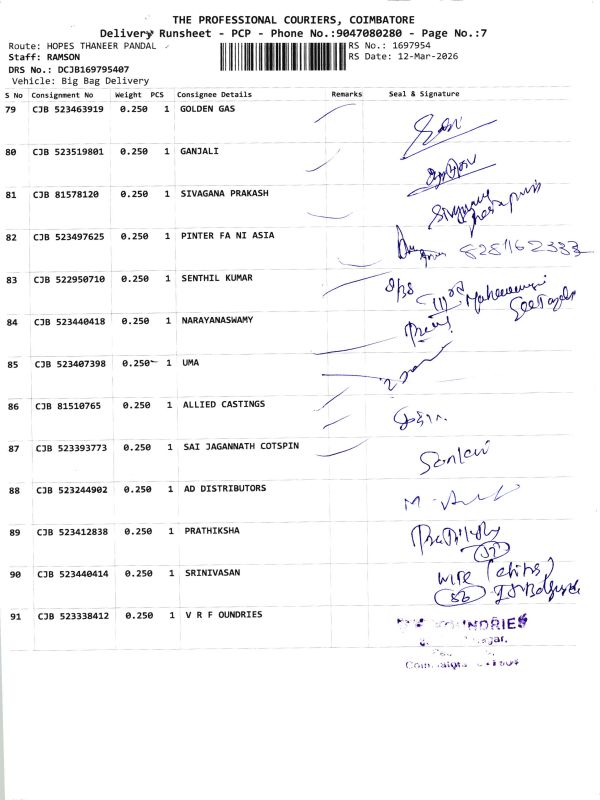 THE PROFESSIONAL COURIERS, COIMBATORE
Delivery Runsheet - PCP - Phone No.:9047080280 - Page No.:7
Route: HOPES THANEER PANDAL
RS No.: 1697954
Staff: RAMSON
RS Date: 12-Mar-2026
DRS No.: DCJB169795407
Vehicle: Big Bag Delivery
S No Consignment No Weight PCS Consignee Details Remarks Seal & Signature
79 CJB 523463919 0.250 1 GOLDEN GAS
80 CJB 523519801 0.250 1 GANJALI
81 CJB 81578120 0.250 1 SIVAGANA PRAKASH
82 CJB 523497625 0.250 1 PINTER FA NI ASIA 8281162333
83 CJB 522950710 0.250 1 SENTHIL KUMAR
84 CJB 523440418 0.250 1 NARAYANASWAMY
85 CJB 523407398 0.250 1 UMA
86 CJB 81510765 0.250 1 ALLIED CASTINGS
87 CJB 523393773 0.250 1 SAI JAGANNATH COTSPIN
88 CJB 523244902 0.250 1 AD DISTRIBUTORS
89 CJB 523412838 0.250 1 PRATHIKSHA
90 CJB 523440414 0.250 1 SRINIVASAN wife
91 CJB 523338412 0.250 1 V R F OUNDRIES